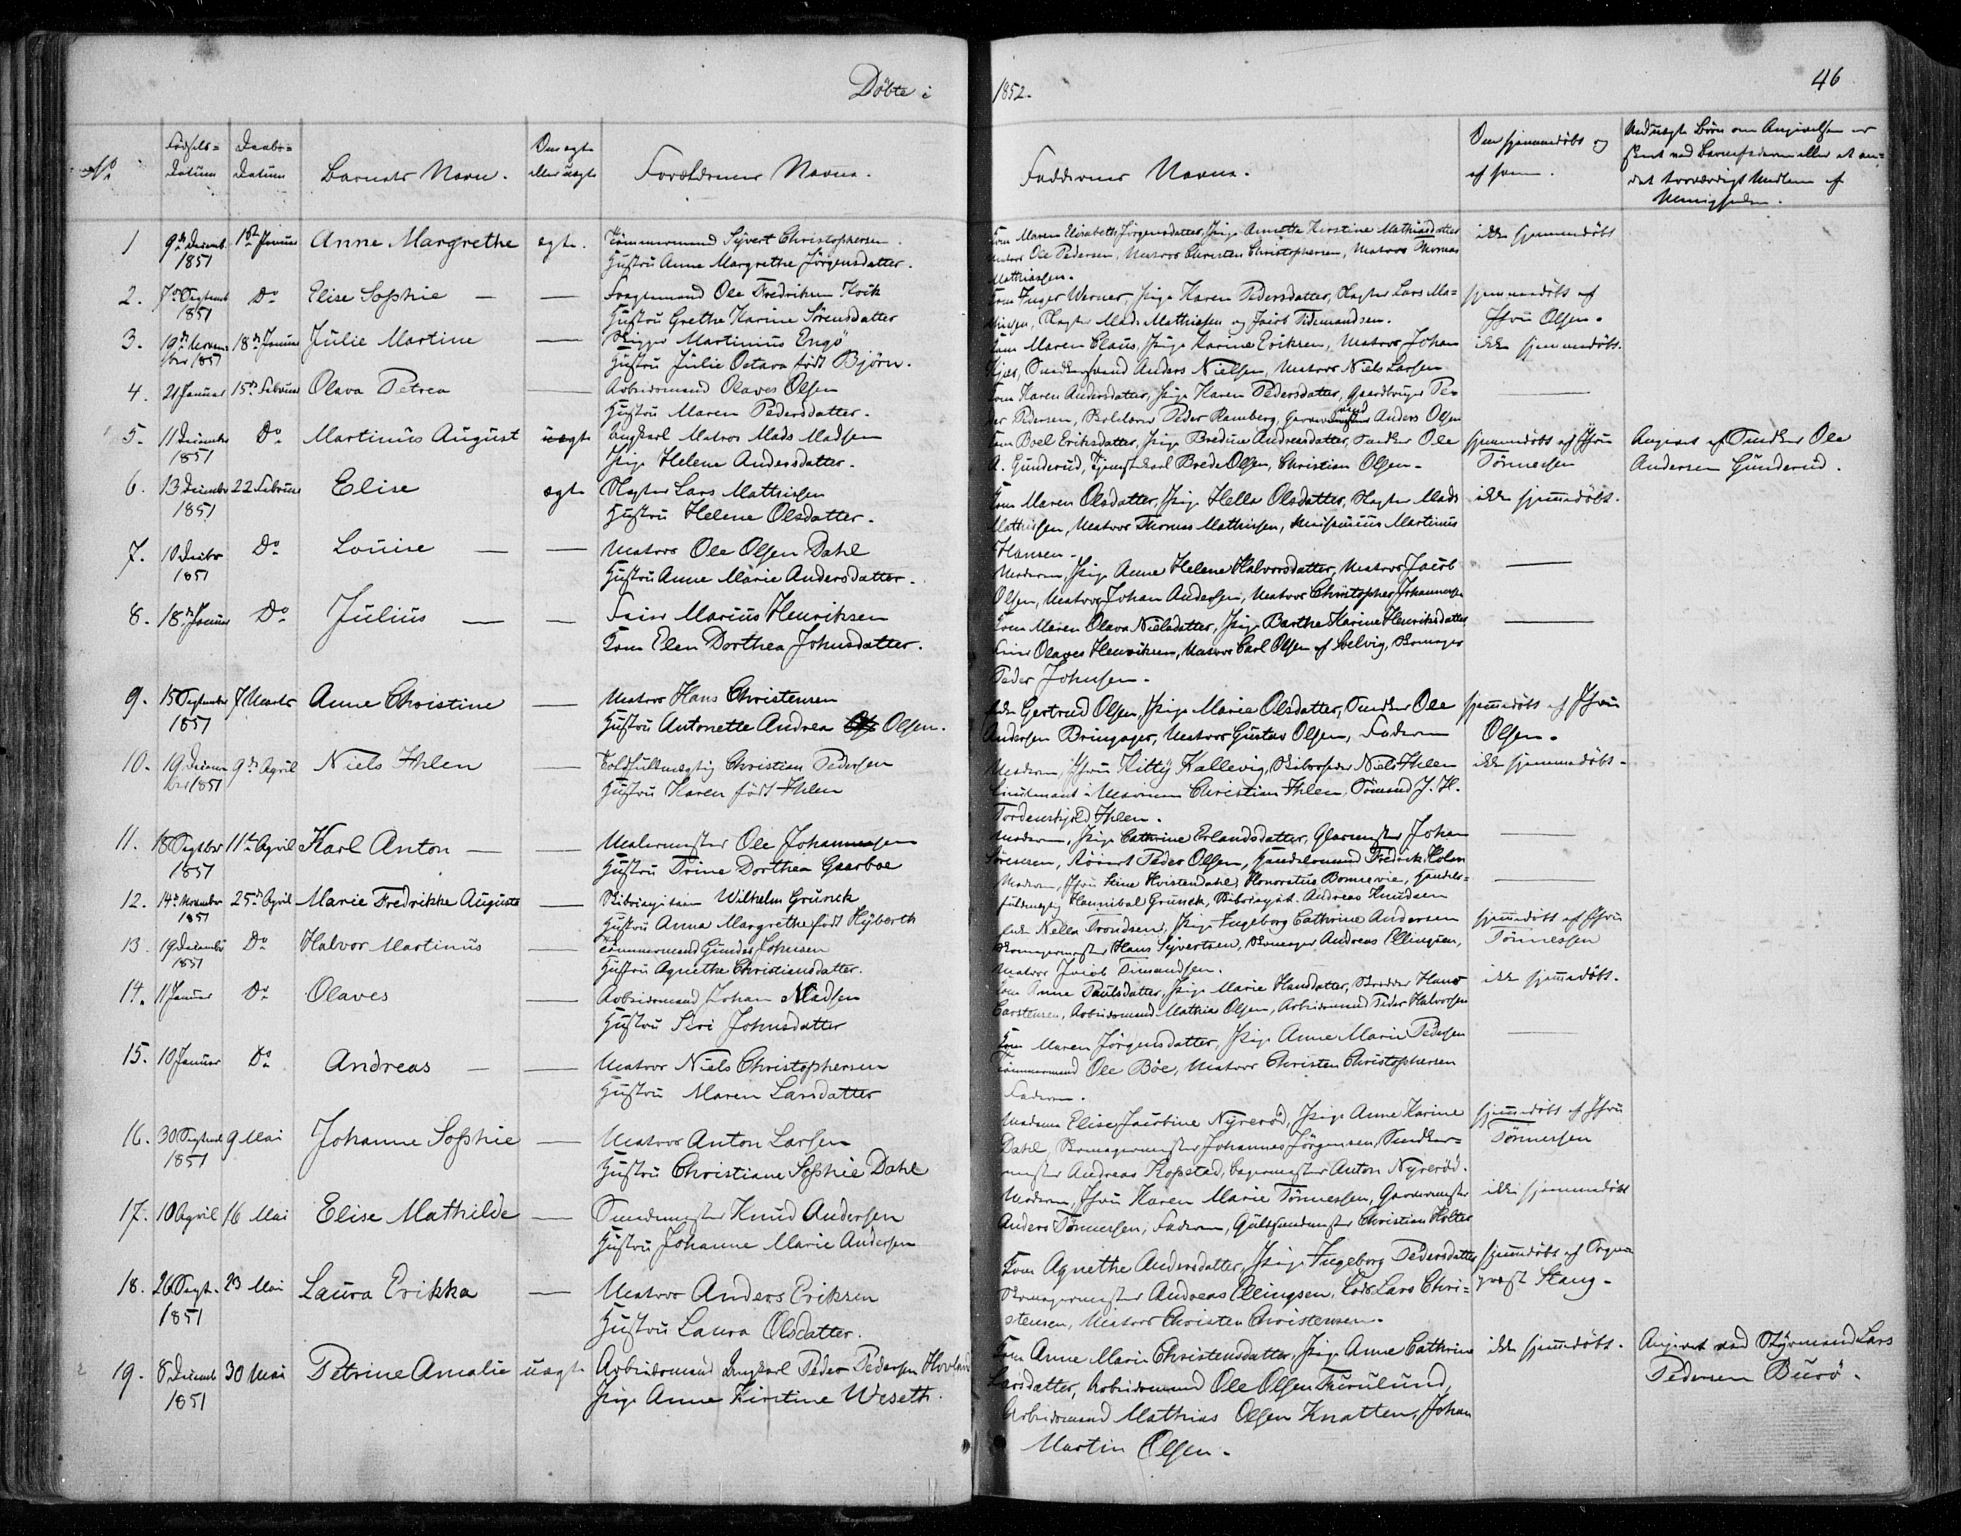 Døbte i
1852.
46
No
Fødsels-
Datum
Daabs-
Datum
Barnets Navn.
Om ægte
eller uægte
Forældrenes Navne.
Faddernes Navne.
Om hjemmedøbt og
af hvem.
Ved uægte Børn om Angivelsen er
skeet ved Barnefaderen eller et an-
det troværdigt Medlem af
Menigheden.
1 9de Decemb. 1ste Januar Anne Margrethe ægte. Tømmermand Syvert Christophersen
1851 Hustru Anne Margrethe Jörgensdatter.
Kone Maren Elisabeth Jörgensdatter, Pige Annette Kirstine Mathiasdatter
Matros Ole Pedersen, Matros Christen Christophersen, Matros Thomas
Mathiassen.
ikke hjemmedøbt
2. 7de Septemb Do Elise Sophie — — Fragtemand Ole Fredriksen
1851 Hustru Grethe Karine Sörensdatter
Kone Inger Werner, Pige Karen Pedersdatter, Slagter Lars Ma-
thisen, Slagter Mads Mathiesen og Jacob Tidemandsen.
hjemmedøbt af
Jfru Olsen.
3. 19de Novem- 18de Januar Julie Martine — Rigger Martinius Engö
ber 1851 Hustru Julie Octava født Björn.
Kone Maren Claus, Pige Karine Eriksen, Matros Johan
Anders Nielsen, Matros Niels Larsen
ikke hjemmedøbt.
4. 21 Januar 15de Februar Olava Petrea — Arbeidsmand Olaves Olsen
Hustru Maren Pedersdatter.
Kone Karen Andersdatter, Pige Karen Pedersdatter, Gaardbruger Pe-
der Pedersen, Peder Ramberg, Anders Olsen
—
5. 11 December Do Martinus August uægte Ungkarl Matros Mads Madsen
1851 Pige Helene Andersdatter.
Kone Boel Eriksdatter, Pige Bredine Andreasdatter, Snedker Ole
A. Gunderud, Tjenestekarl Brede Olsen, Christian Olsen.
hjemmedøbt af Jfru
Tönnessen
Angivet af Snedker Ole
Andersen Gunderud.
6. 13 December 22 Februar Elise ægte Slagter Lars Mathisen
1851 Hustru Helene Olsdatter.
Kone Maren Olsdatter, Pige Helle Olsdatter, Slagter Mads
Mathisen, Matros Thomas Mathisen, Martinus
Hansen.
ikke hjemmedøbt.
7. 10 Decbr Do Louise — — Matros Ole Olsen Dahl
1851 Hustru Anne Marie Andersdatter.
Moderen, Pige Anne Helene Halvorsdatter, Matros Jacob
Olsen, Matros Johan Andersen, Matros Christopher Johannesen
—
8. 18de Januar Do Julius — — Feier Marius Henriksen
Kone Elen Dorthea Johnsdatter.
Kone Maren Olava Nielsdatter, Pige Barthe Karine Henriksdatter
Feier Olaves Henriksen, Matros Carl Olsen af Selvig, Skomager
Peder Johnsen.
—
9. 15 September 7 Marts Anne Christine — Matros Hans Christensen
1851 Hustru Antonette Andrea Olsen.
Enke Gertrud Olsen, Pige Marie Olsdatter, Snedker Ole
Andersen Bringager, Matros Gustav Olsen, Faderen
hjemmedøbt af Jfru
Olsen.
10. 19 Decem- 9de April Niels Ihlen — Toldfuldmægtig Christian Pedersen
ber 1851 Hustru Karen født Ihlen
Moderen, Jfru Kitty Kallevig, Skibsreder Niels Ihlen
Lieutenant i Marinen Christian Ihlen, Sömand J. H.
Tordenskjold Ihlen.
ikke hjemmedøbt.
11. 18 Septbr 11te April Karl Anton — — Malermester Ole Johannesen
1851 Hustru Trine Dorthea Gaarboe
Moderen, Pige Cathrine Erlandsdatter, Glarmester Johan
Sörensen, Peder Olsen, Handelsmand Fredrik Holm
—
12. 14de November 25de April Marie Fredrikke Augusta — Skibscapitain Wilhelm Gruneck
1851 Hustru Anna Margrethe født Hyberth
Moderen, Jfru Kistendahl, Honoratus Bonnevie, Handels-
fuldmægt. Hannibal Gruneck, Skibscapt. Andreas Knudsen
—
13. 19 December Do Halvor Martinus — Tömmermand Gunder Johnsen
1851 Hustru Agnethe Christiansdatter.
Enke Nella Trondsen, Pige Ingeborg Cathrine Andersen
Skomagermester Hans Syvertsen, Skomager Andreas Ellingsen,
Matros Jacob Timandsen.
hjemmedøbt af Jfru
Tönnessen
14. 11 Januar Do Olaves — Arbeidsmand Johan Madsen
Hustru Siri Johnsdatter
Kone Anne Paulsdatter, Pige Marie Hansdatter, Skrædder Hans
Carstensen, Arbeidsmand Mathias Olsen, Arbeidsmand Peder Halvorsen
ikke hjemmedøbt.
15. 10 Januar Do Andreas — — Matros Niels Christophersen
Hustru Maren Larsdatter
Kone Maren Jörgensdatter, Pige Anne Marie Pedersen
Tömmermand Ole Böe, Matros Christen Christophersen
Faderen.
—
16. 30 Septemb 9 Mai Johanne Sophie — Matros Anton Larsen
1851 Hustru Christiane Sophie Dahl
Madam Elise Jacobine Nyrerød, Pige Anne Karine
Dahl, Skomagermester Johannes Jörgensen, Snedker-
mester Andreas Kopstad, Bagermester Anton Nyrerød.
hjemmedøbt af Jfru
Tönnessen
17. 10 April 16 Mai Elise Mathilde — Smedmester Knud Andersen
Hustru Johanne Marie Andersen
Moderen, Jfru Karen Marie Tönnessen, Garvermester
Anders Tönnessen, Faderen, Guldsmedmester Christian Holter
ikke hjemmedøbt
18. 26 Sept. 23 Mai Laura Erikka — Matros Anders Eriksen
1851 Hustru Laura Olsdatter.
Kone Agnethe Andersdatter, Pige Ingeborg Pedersdatter
Skomagermester Andreas Ellingsen, Lods Lars Chri-
stensen, Matros Christen Christensen.
hjemmedøbt af Sogne-
præst Stang.
19. 8 Decemb 30 Mai Petrine Amalie uægte Arbeidsmand Ungkarl Peder Pedersen Hovland
1851 Pige Anne Kirstine Weseth.
Kone Anne Marie Christensdatter, Pige Anne Cathrine
Larsdatter, Arbeidsmand Ole Olsen Furulund,
Arbeidsmand Mathias Olsen Knatten, Johan
Martin Olsen.
ikke hjemmedøbt.
Angivet ved Styrmand Lars
Pedersen Burö.